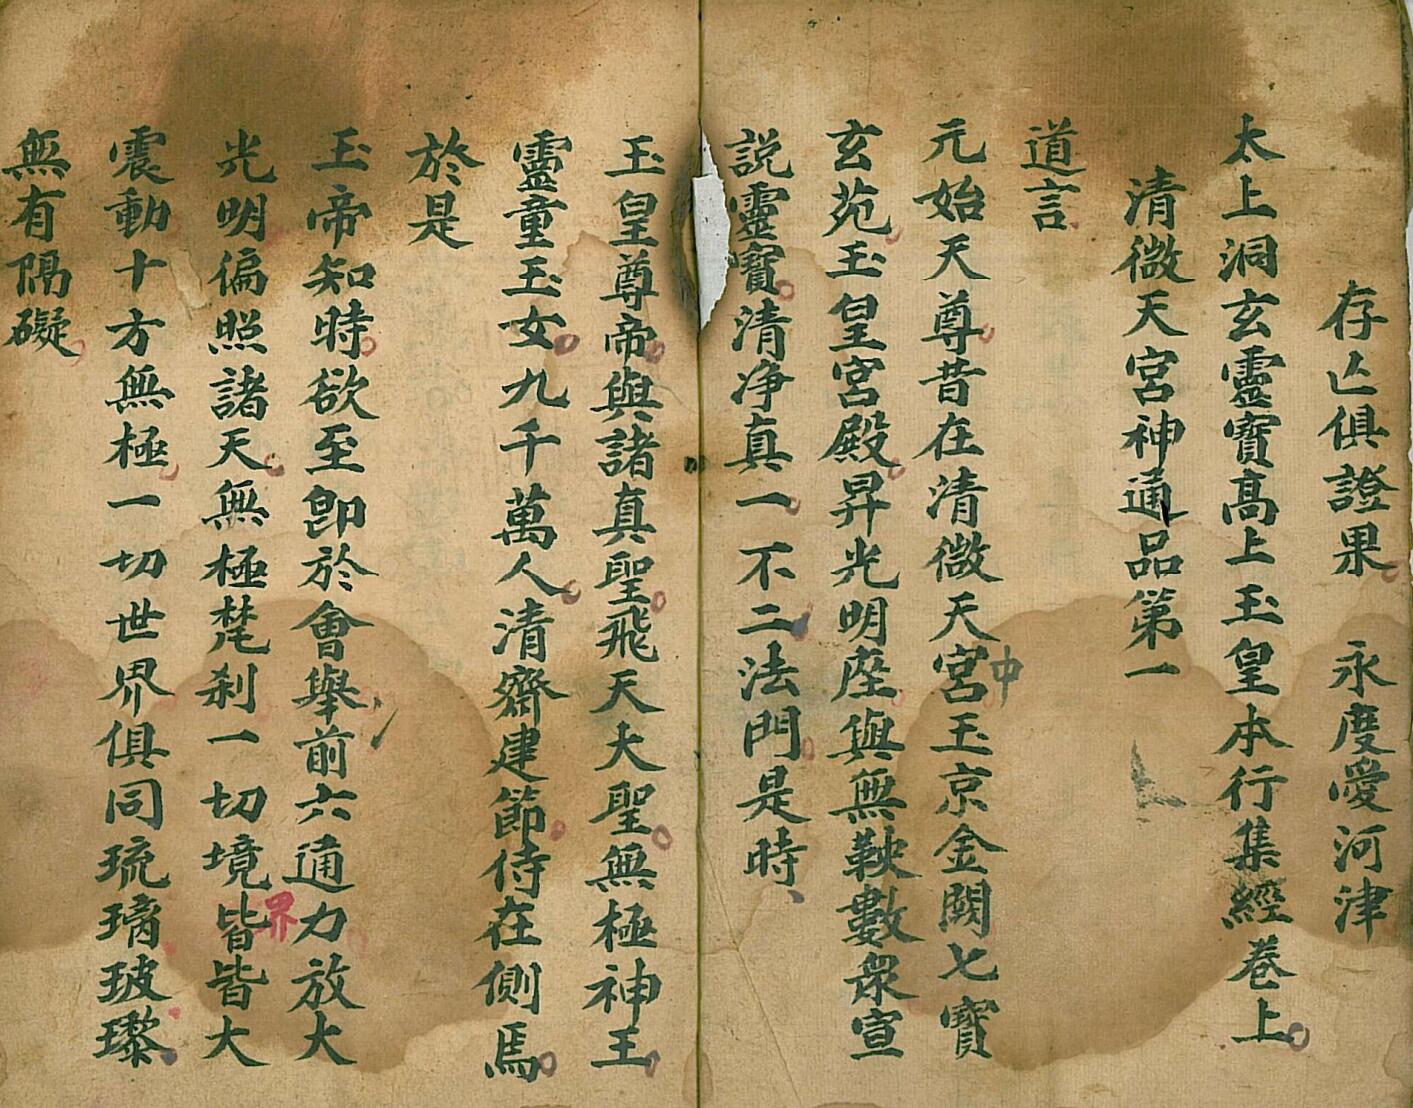 存亾俱證果 永度愛河津
太上洞玄靈寶高上玉皇本行集經卷上
清微天宮神通品第一
道言
元始天尊昔在清微天宮中玉京金闕七寶
玄苑玉皇宮殿昇光明座與無鞅數衆宣
説靈寶清净真一不二法門是時
玉皇尊帝與諸真聖飛天大聖無極神王
靈童玉女九千萬人清齋建節侍在側焉
於是
玉帝知時欲至即於會舉前六通力放大
光明偏照諸天無極梵刹一切境界皆皆大
震動十方無極一切世界俱同琉璃玻瓈
無有隔礙